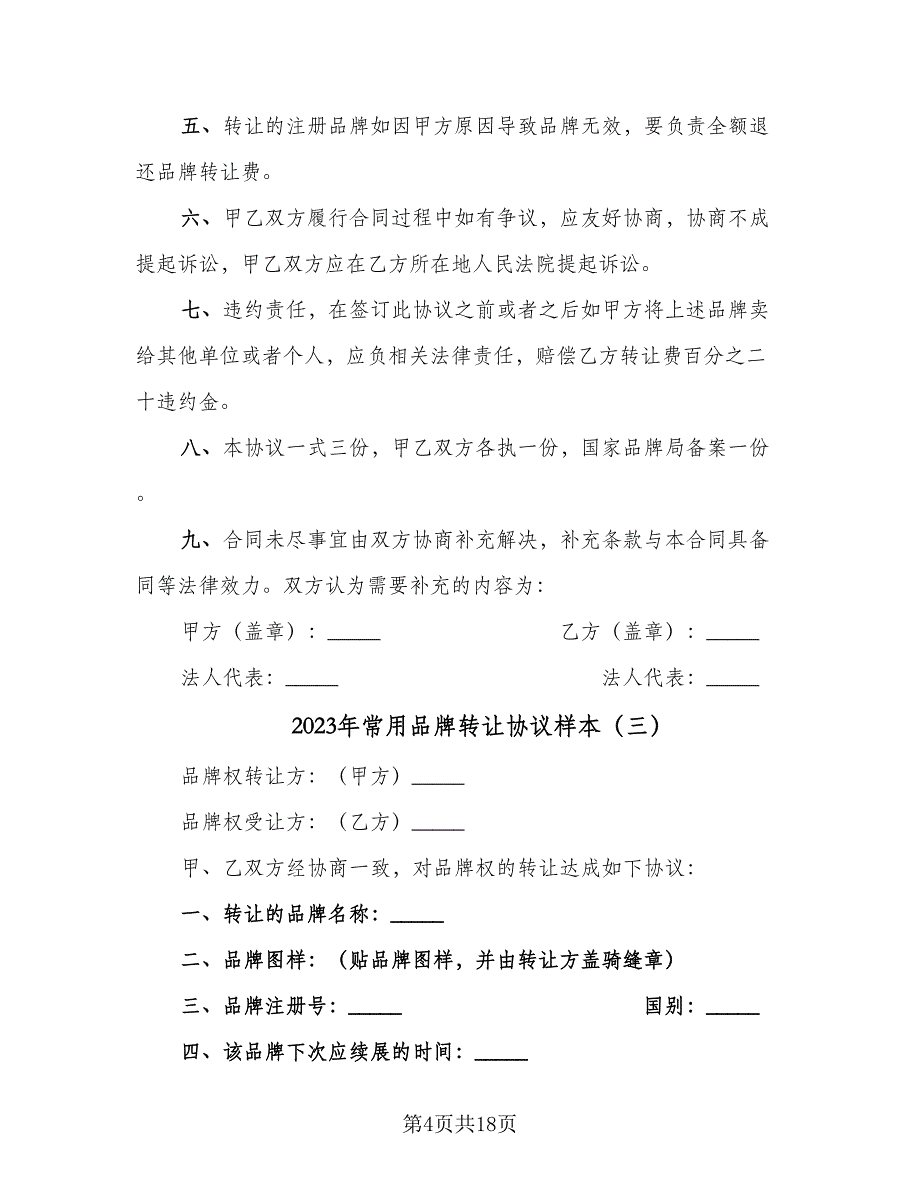 五、转让的注册品牌如因甲方原因导致品牌无效，要负责全额退
还品牌转让费。
六、甲乙双方履行合同过程中如有争议，应友好协商，协商不成
提起诉讼，甲乙双方应在乙方所在地人民法院提起诉讼。
七、违约责任，在签订此协议之前或者之后如甲方将上述品牌卖
给其他单位或者个人，应负相关法律责任，赔偿乙方转让费百分之二
十违约金。
八、本协议一式三份，甲乙双方各执一份，国家品牌局备案一份
。
九、合同未尽事宜由双方协商补充解决，补充条款与本合同具备
同等法律效力。双方认为需要补充的内容为：
甲方（盖章）：_____ 乙方（盖章）：_____
法人代表：_____ 法人代表：_____
2023年常用品牌转让协议样本（三）
品牌权转让方：（甲方）_____
品牌权受让方：（乙方）_____
甲、乙双方经协商一致，对品牌权的转让达成如下协议：
一、转让的品牌名称：_____
二、品牌图样：（贴品牌图样，并由转让方盖骑缝章）
三、品牌注册号：_____ 国别：_____
四、该品牌下次应续展的时间：_____
第4页共18页